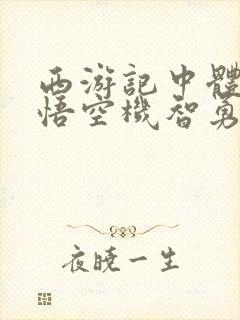 西游記中體
悟空機智勇
夜曉一生